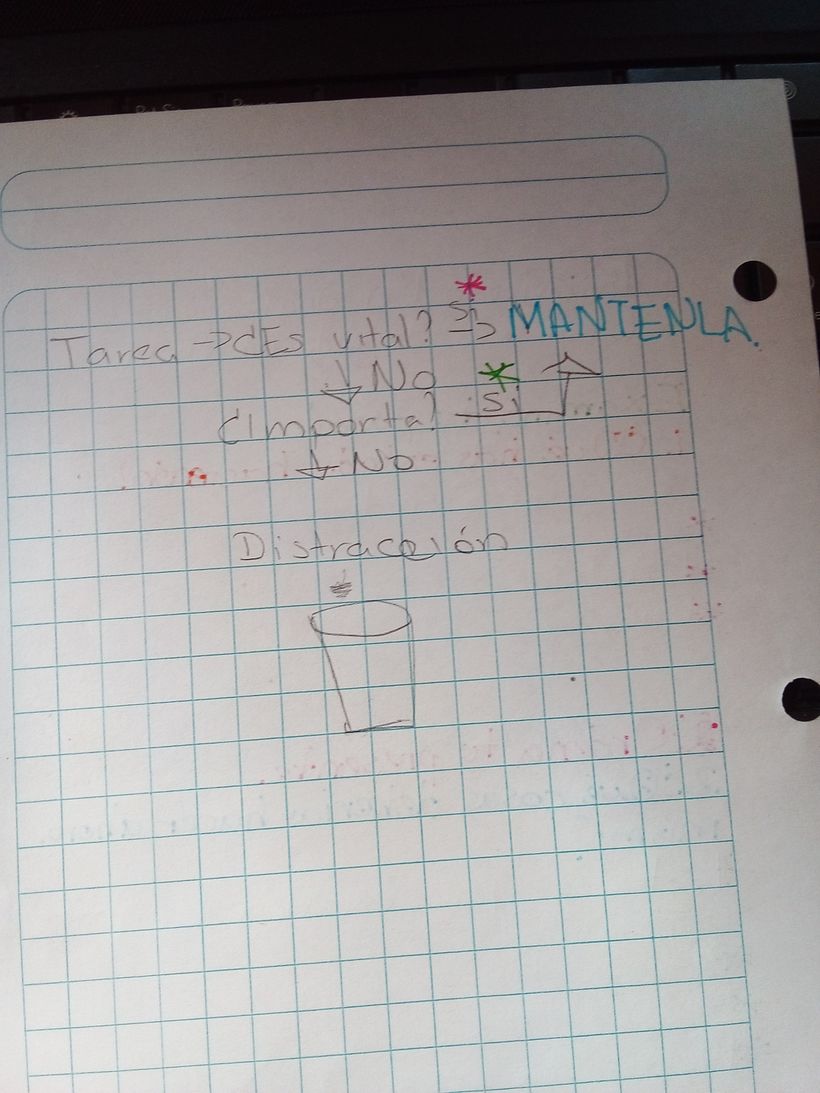 Tarea → ¿Es vital? Sí → MANTENLA.
↓ No
¿Importa? Si
↓ No
Distracción